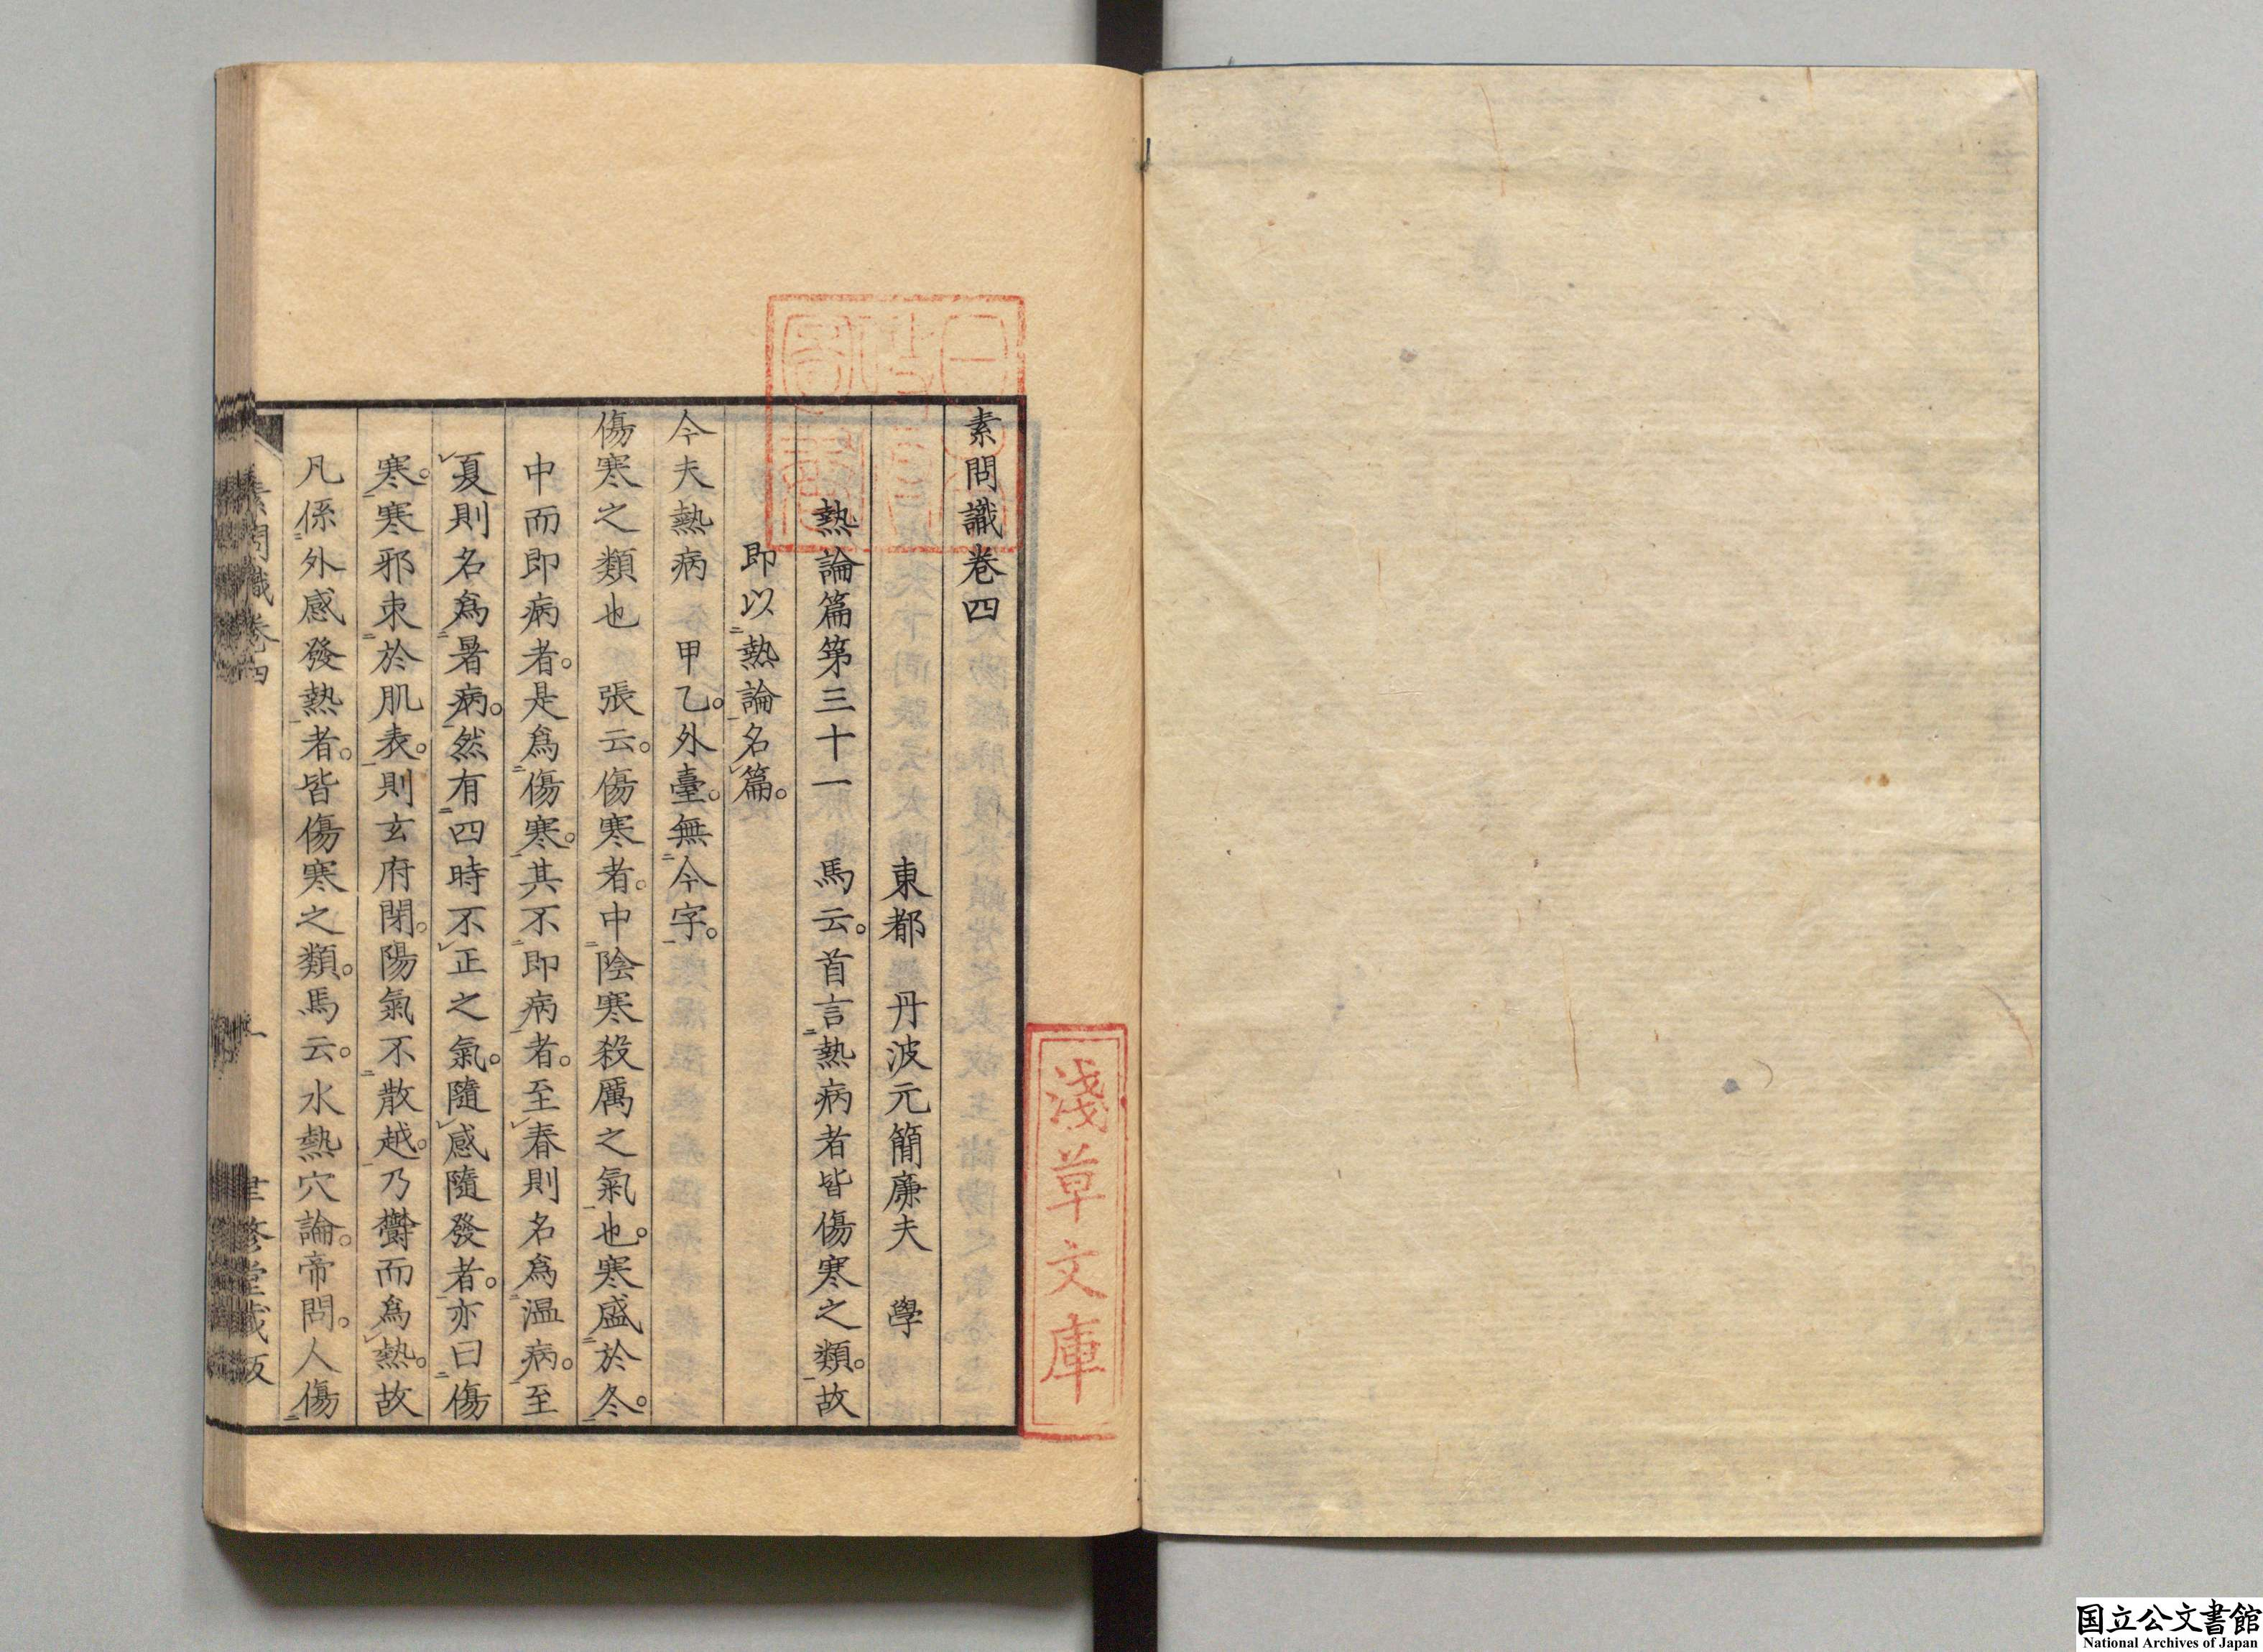 素問識卷四
東都 丹波元簡廉夫 學
熱論篇第三十一 馬云。首言熱病者皆傷寒之類。故
即以熱論名篇。
今夫熱病 甲乙。外臺。無今字。
傷寒之類也 張云。傷寒者。中陰寒殺厲之氣也。寒盛於冬。
中而即病者。是爲傷寒。其不即病者。至春則名爲温病。至
夏則名爲暑病。然有四時不正之氣。隨感隨發者。亦曰傷
寒。寒邪朿於肌表。則玄府閉。陽氣不散越。乃欝而爲熱。故
凡係外感發熱者。皆傷寒之類。馬云。水熱穴論。帝問。人傷
素問識卷四 一 聿修堂藏版
淺草文庫
国立公文書館
National Archives of Japan